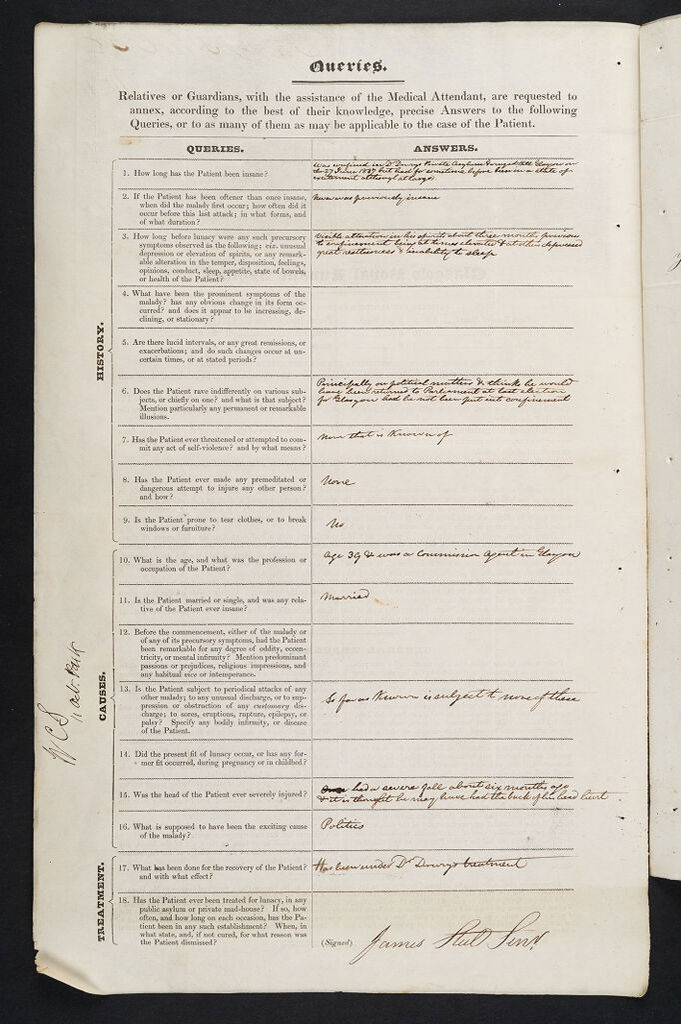 Queries.
Relatives or Guardians, with the assistance of the Medical Attendant, are requested to
annex, according to the best of their knowledge, precise Answers to the following
Queries, or to as many of them as may be applicable to the case of the Patient.
QUERIES.
ANSWERS.
HISTORY.
1. How long has the Patient been insane?
Was confined in Dr Drury's Private Asylum Garngad Hill Glasgow on
the 27 June 1837 but had for sometime before been in a state of
excitement although at large
2. If the Patient has been oftener than once insane,
when did the malady first occur; how often did it
occur before this last attack; in what forms, and
of what duration?
None was previously insane
3. How long before lunacy were any such precursory
symptoms observed as the following: viz. unusual
depression or elevation of spirits, or any remark-
able alteration in the temper, disposition, feelings,
opinions, conduct, sleep, appetite, state of bowels,
or health of the Patient?
Visible in his spirits about three months previous
to confinement being at times elevated & at others depressed
great restlessness & inability to sleep
4. What have been the prominent symptoms of the
malady? has any obvious change in its form oc-
curred? and does it appear to be increasing, de-
clining, or stationary?
5. Are there lucid intervals, or any great remissions, or
exacerbations; and do such changes occur at un-
certain times, or at stated periods?
6. Does the Patient rave indifferently on various sub-
jects, or chiefly on one? and what is that subject?
Mention particularly any permanent or remarkable
illusions.
Principally on political matters & think he would
have been returned to Parliament at last election
for Glasgow had he not been put into confinement
7. Has the Patient ever threatened or attempted to com-
mit any act of self-violence? and by what means?
None that is known of
8. Has the Patient ever made any premeditated or
dangerous attempt to injure any other person?
and how?
None
9. Is the Patient prone to tear clothes, or to break
windows or furniture?
No
CAUSES.
10. What is the age, and what was the profession or
occupation of the Patient?
Age 39 & was a Commission Agent in Glasgow
11. Is the Patient married or single, and was any rela-
tive of the Patient ever insane?
Married
12. Before the commencement, either of the malady or
of any of its precursory symptoms, had the Patient
been remarkable for any degree of oddity, eccen-
tricity, or mental infirmity? Mention predominant
passions or prejudices, religious impressions, and
any habitual vice or intemperance.
13. Is the Patient subject to periodical attacks of any
other malady; to any unusual discharge, or to sup-
pression or obstruction of any customary dis-
charge; to sores, eruptions, rupture, epilepsy, or
palsy? Specify any bodily infirmity, or disease
of the Patient.
So far as Known is subject to none of these
14. Did the present fit of lunacy occur, or has any for-
mer fit occurred, during pregnancy or in childbed?
15. Was the head of the Patient ever severely injured?
had a severe fall about six months ago
& it is thought he may have had the back of his head hurt
16. What is supposed to have been the exciting cause
of the malady?
Politics
TREATMENT.
17. What has been done for the recovery of the Patient?
and with what effect?
Has been under Dr Drury's treatment
18. Has the Patient ever been treated for lunacy, in any
public asylum or private mad-house? If so, how
often, and how long on each occasion, has the Pa-
tient been in any such establishment? When, in
what state, and, if not cured, for what reason was
the Patient dismissed?
(Signed)
James Senr